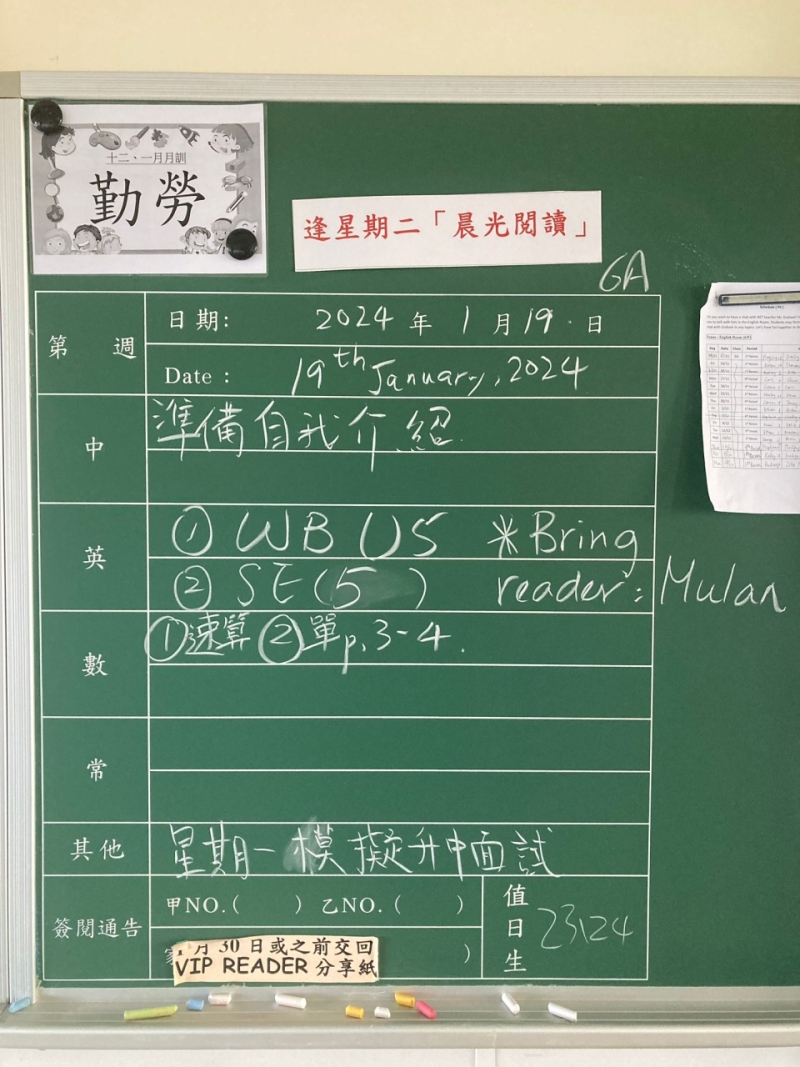 十二、一月月訓
勤勞
逢星期二「晨光閱讀」
6A
第 週
日期: 2024 年 1 月 19 日
Date : 19th January, 2024
中
準備自我介紹
英
① WB U5 *Bring
② SE(5 ) reader: Mulan
數
①速算 ②單p.3-4.
常
其他
星期一模擬升中面試
簽閱通告
甲NO.( ) 乙NO.( )
月 30 日或之前交回
VIP READER 分享紙
)
值日生
23,24